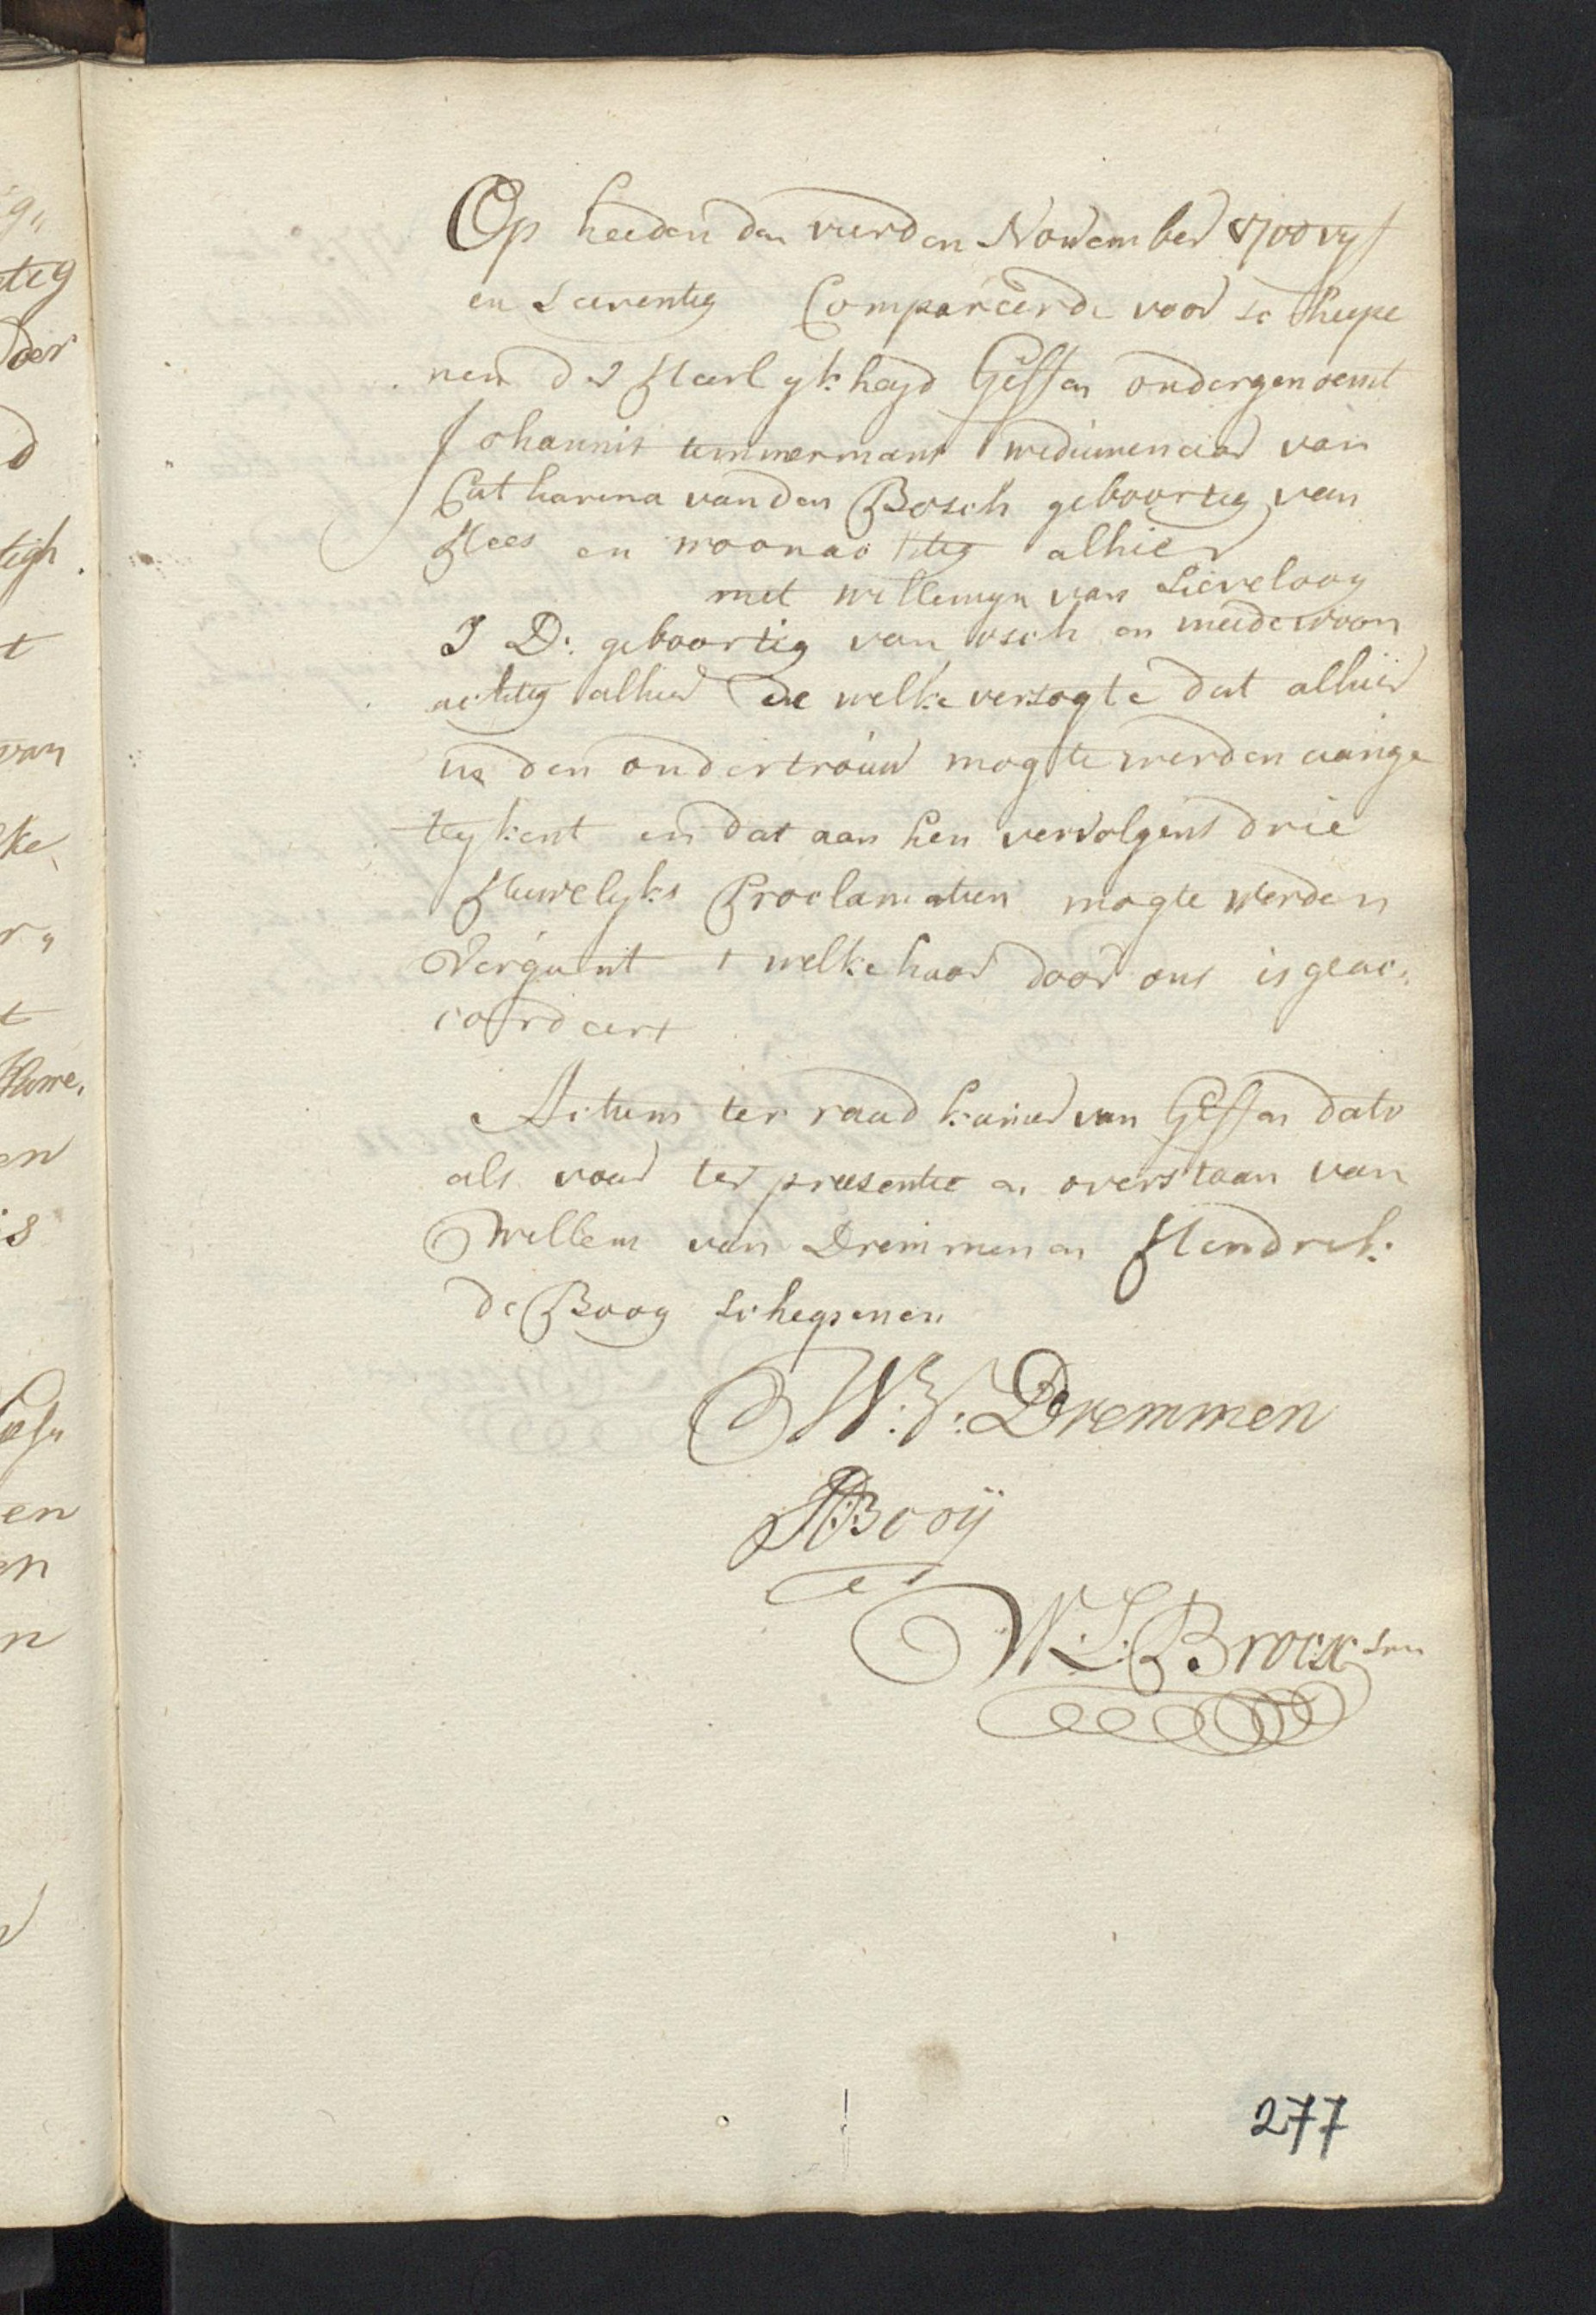 Op heeden den vierden November 1700 vyf
en seeventig Compareerde voor scheepe
nen der Heerlykheyd Geffen ondergenoemt
Johannis timmermans weduwenaar van
Catharina van den Bosch geboortig van
Hees en woonachtig alhier
met willemyn van Lieveloog
J D: geboortig van osch en meede woon
achtig alhier de welke versogte dat alhier
in den ondertrouw mogte werden aange
teykent en dat aan hen vervolgens drie
Huwelyks Proclamatien mogte werden
Vergunt t welke haar door ons is geac,
cordeert
Actum ter raad kamer van Geffen dato
als voor ter preesentie en overstaan van
Willem van Dremmen en Hendrik
de Booy scheepenen
W: V: Dremmen
HD Booÿ
W. L. Brocx
277